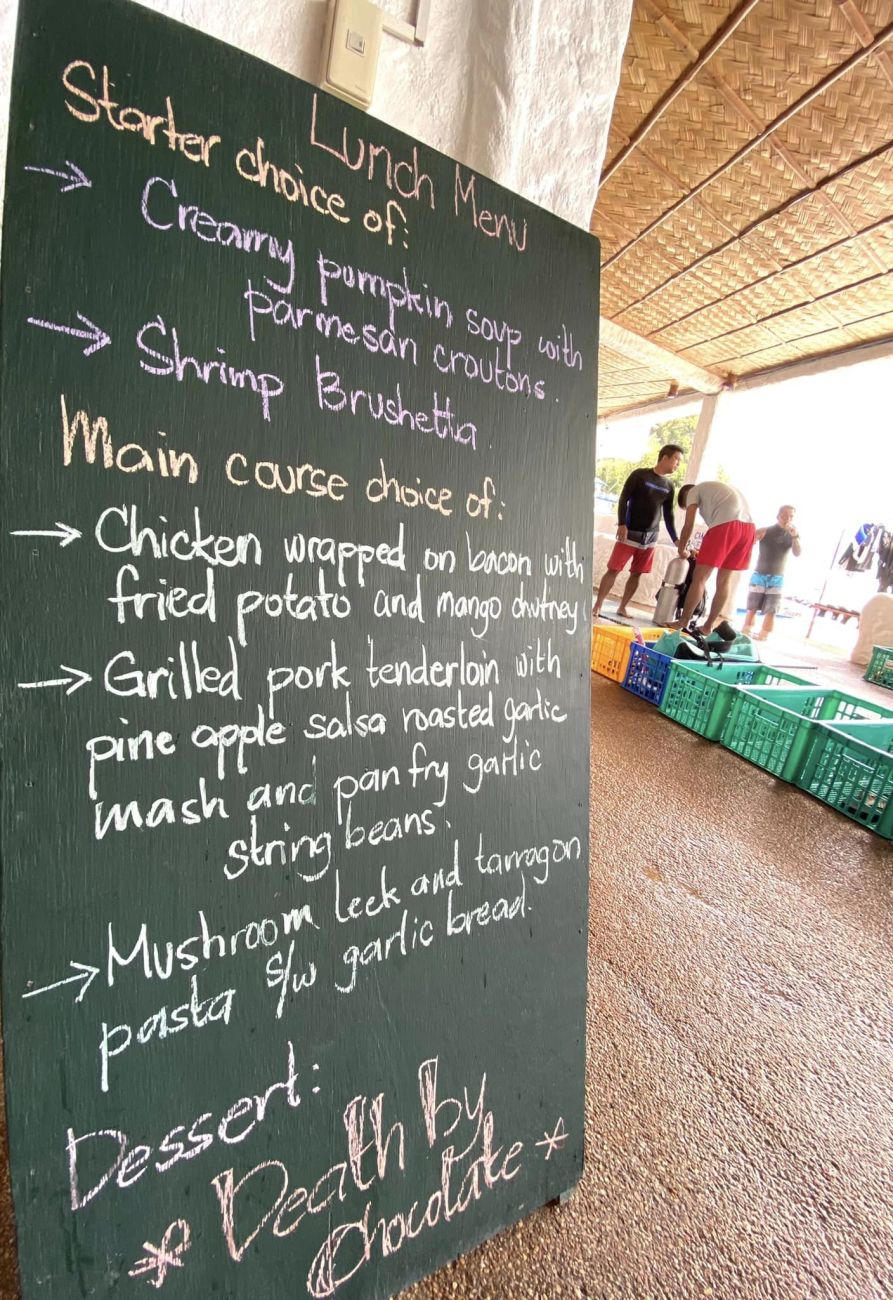 Lunch Menu
Starter choice of:
→ Creamy pumpkin soup with
parmesan croutons.
→ Shrimp Brushetta
Main course choice of:
→ Chicken wrapped on bacon with
fried potato and mango chutney
→ Grilled pork tenderloin with
pine apple salsa roasted garlic
mash and pan fry garlic
string beans.
→ Mushroom leek and tarragon
pasta s/w garlic bread.
Dessert:
* Death by
Chocolate *